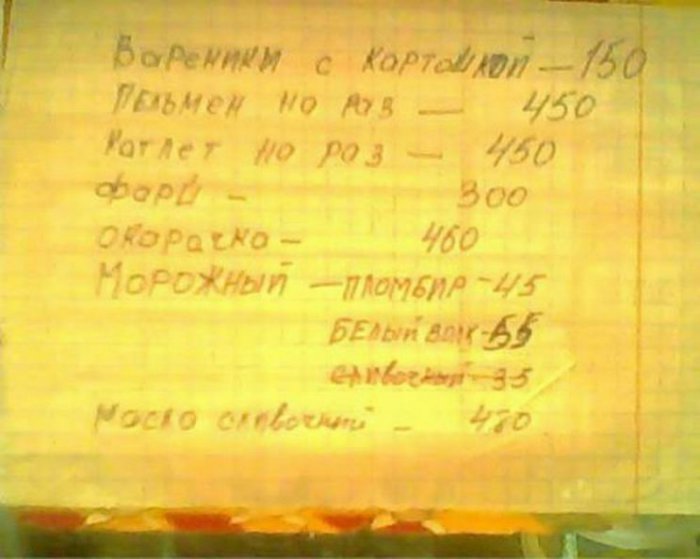 Вареники с картошкой — 150
Пельмен на раз — 450
Катлет на раз — 450
Фарш — 300
Окарачка — 460
Морожный — пломбир - 45
Белый волк - 55
сливочный - 35
Масло сливочный - 480